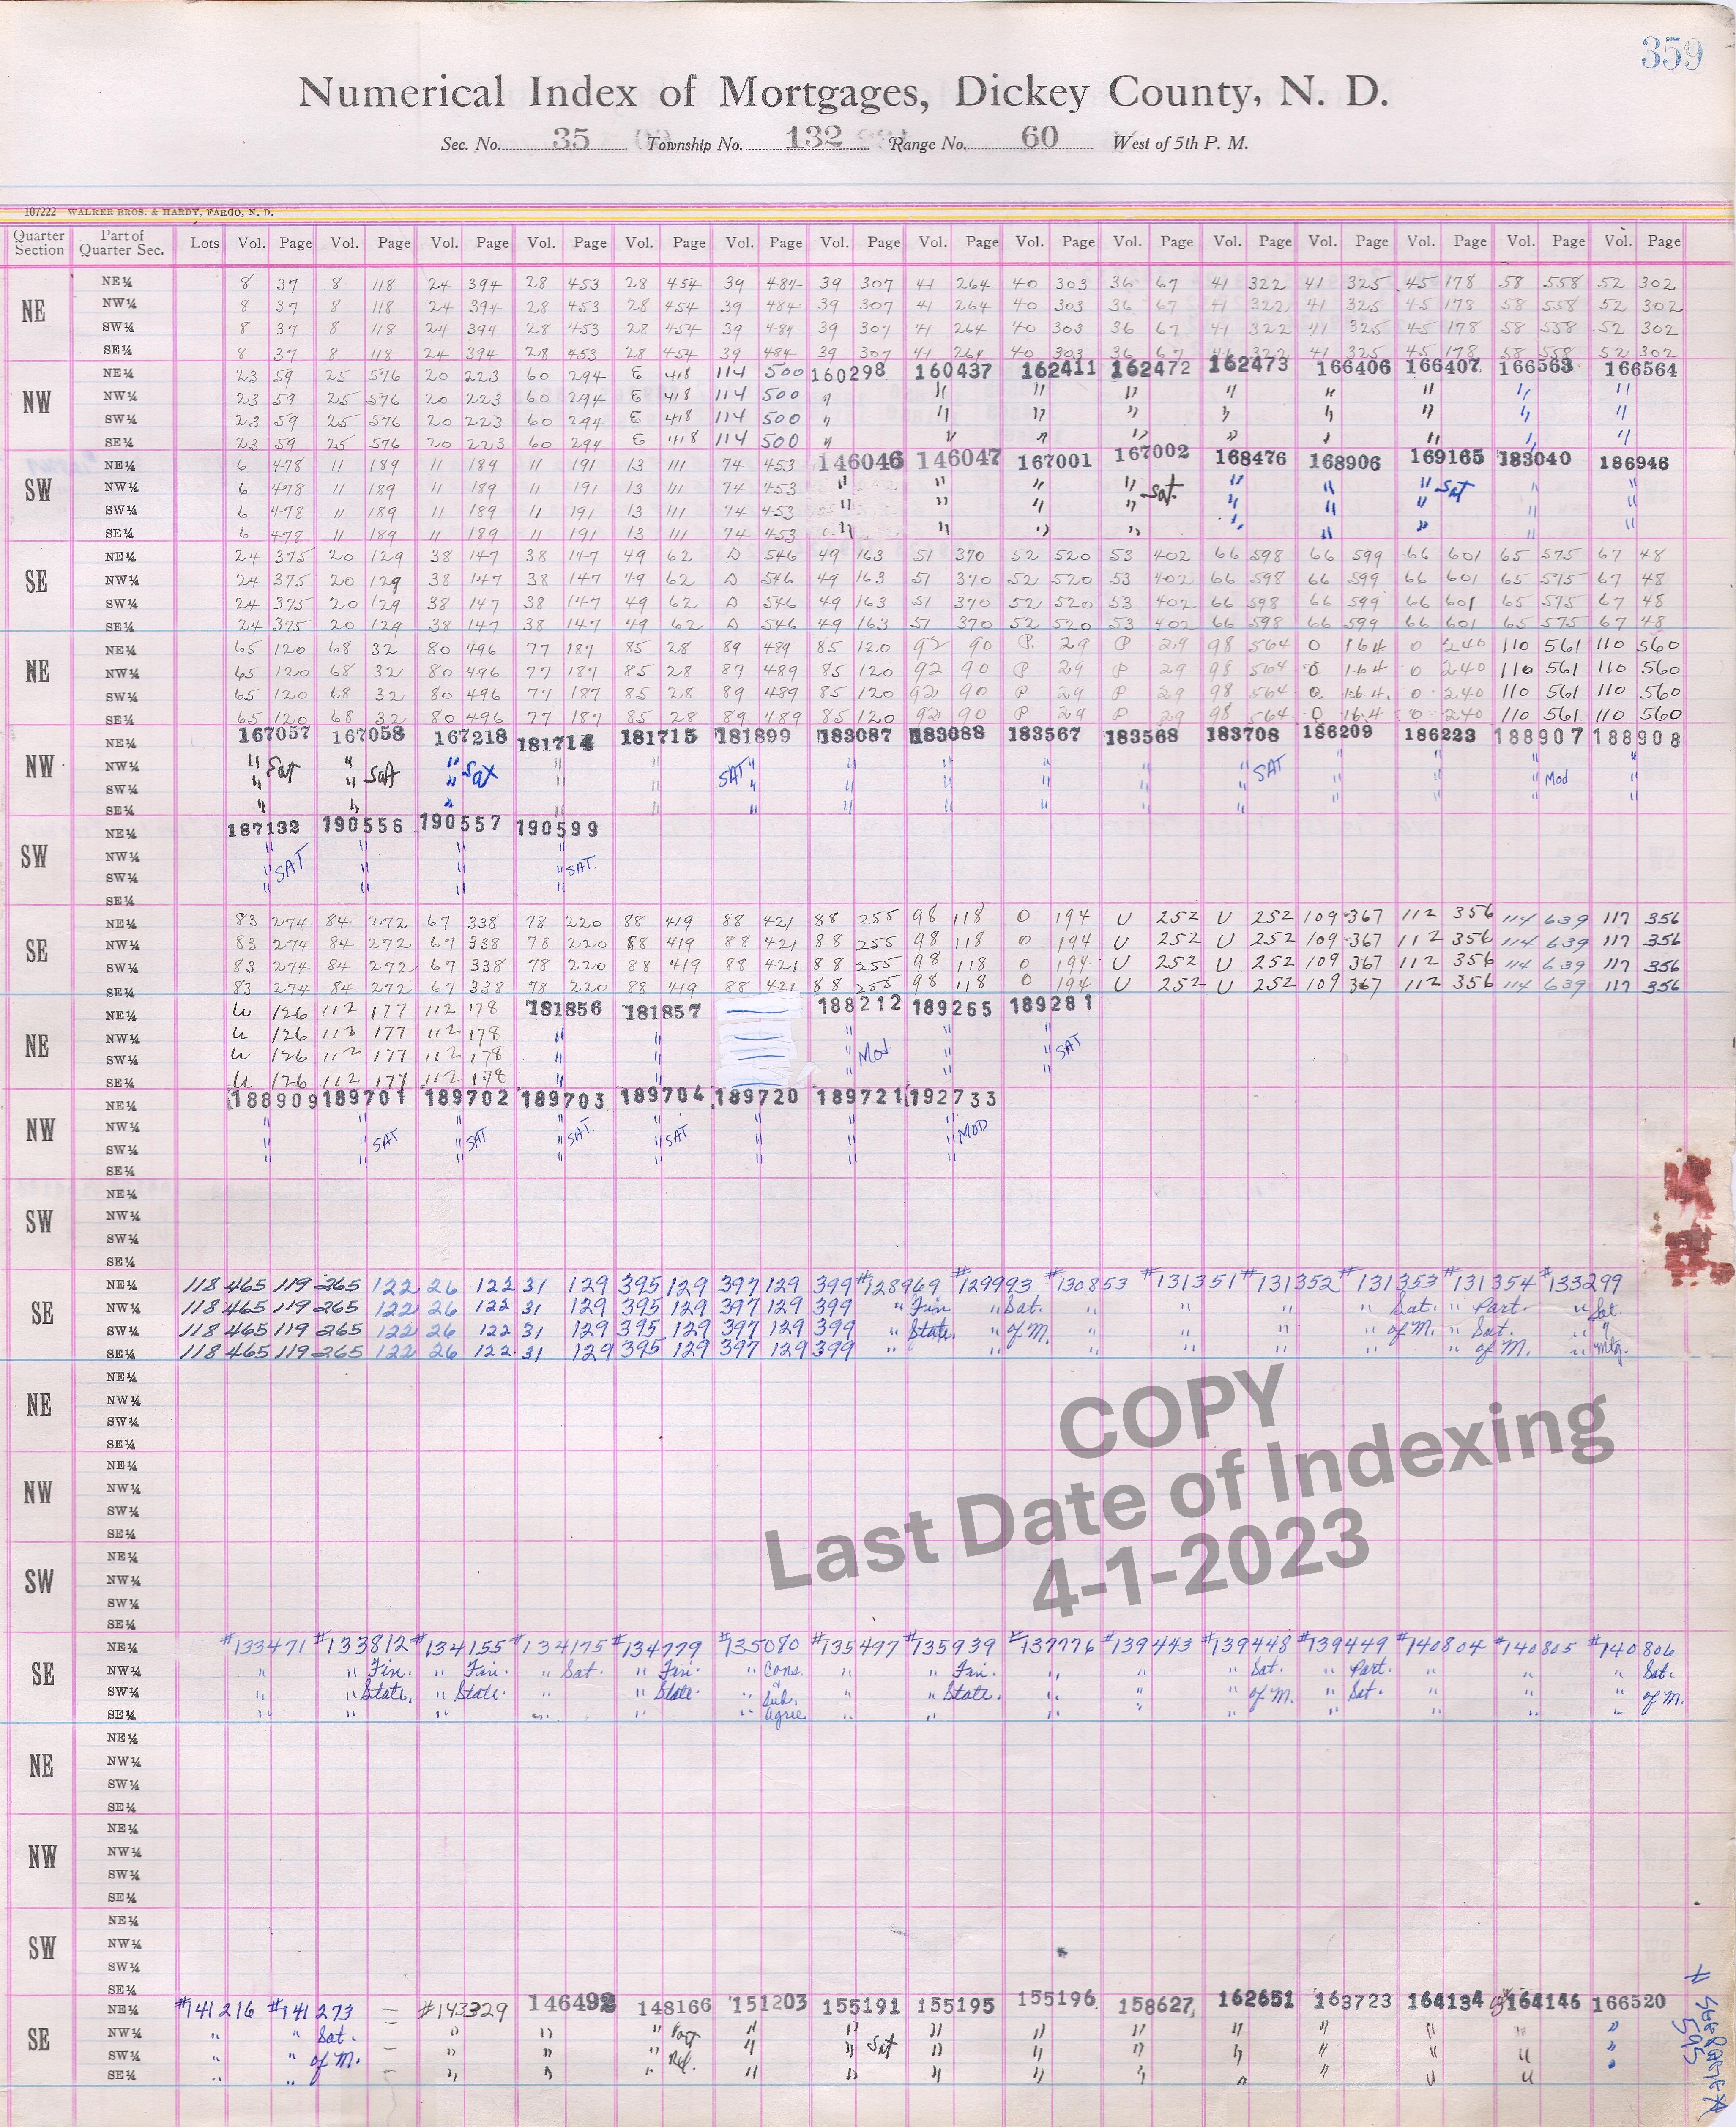 359
Numerical Index of Mortgages, Dickey County, N. D.
Sec. No. 35 Township No. 132 Range No. 60 West of 5th P. M.
107222 WALKER BROS. & HARDY, FARGO, N. D.
Quarter Section Part of Quarter Sec. Lots Vol. Page Vol. Page Vol. Page Vol. Page Vol. Page Vol. Page Vol. Page Vol. Page Vol. Page Vol. Page Vol. Page Vol. Page Vol. Page Vol. Page Vol. Page
NE NE¼ 8 37 8 118 24 394 28 453 28 454 39 484 39 307 41 264 40 303 36 67 41 322 41 325 45 178 58 558 52 302
NW¼ 8 37 8 118 24 394 28 453 28 454 39 484 39 307 41 264 40 303 36 67 41 322 41 325 45 178 58 558 52 302
SW¼ 8 37 8 118 24 394 28 453 28 454 39 484 39 307 41 264 40 303 36 67 41 322 41 325 45 178 58 558 52 302
SE¼ 8 37 8 118 24 394 28 453 28 454 39 484 39 307 41 264 40 303 36 67 41 322 41 325 45 178 58 558 52 302
NW NE¼ 23 59 25 576 20 223 60 294 E 418 114 500 160298 160437 162411 162472 162473 166406 166407 166563 166564
NW¼ 23 59 25 576 20 223 60 294 E 418 114 500 " " " " " " " " "
SW¼ 23 59 25 576 20 223 60 294 E 418 114 500 " " " " " " " " "
SE¼ 23 59 25 576 20 223 60 294 E 418 114 500 " " " " " " " " "
SW NE¼ 6 478 11 189 11 189 11 191 13 111 74 453 146046 146047 167001 167002 168476 168906 169165 183040 186946
NW¼ 6 478 11 189 11 189 11 191 13 111 74 453 " " " " Sat. " " " Sat " "
SW¼ 6 478 11 189 11 189 11 191 13 111 74 453 " " " " " " " " "
SE¼ 6 478 11 189 11 189 11 191 13 111 74 453 " " " " " " " " "
SE NE¼ 24 375 20 129 38 147 38 147 49 62 D 546 49 163 51 370 52 520 53 402 66 598 66 599 66 601 65 575 67 48
NW¼ 24 375 20 129 38 147 38 147 49 62 D 546 49 163 51 370 52 520 53 402 66 598 66 599 66 601 65 575 67 48
SW¼ 24 375 20 129 38 147 38 147 49 62 D 546 49 163 51 370 52 520 53 402 66 598 66 599 66 601 65 575 67 48
SE¼ 24 375 20 129 38 147 38 147 49 62 D 546 49 163 51 370 52 520 53 402 66 598 66 599 66 601 65 575 67 48
NE NE¼ 65 120 68 32 80 496 77 187 85 28 89 489 85 120 92 90 P. 29 P 29 98 564 O 164 O 240 110 561 110 560
NW¼ 65 120 68 32 80 496 77 187 85 28 89 489 85 120 92 90 P 29 P 29 98 564 O 164 O 240 110 561 110 560
SW¼ 65 120 68 32 80 496 77 187 85 28 89 489 85 120 92 90 P 29 P 29 98 564 O 164 O 240 110 561 110 560
SE¼ 65 120 68 32 80 496 77 187 85 28 89 489 85 120 92 90 P 29 P 29 98 564 O 164 O 240 110 561 110 560
NW NE¼ 167057 167058 167218 181714 181715 181899 183087 183088 183567 183568 183708 186209 186223 188907 188908
NW¼ " Sat " Sat " Sat " " SAT " " " " " " SAT " " " Mod "
SW¼ " " " " " " " " " " " " " " "
SE¼ " " " " " " " " " " "
SW NE¼ 187132 190556 190557 190599
NW¼ " SAT " " " SAT.
SW¼ " " " "
SE¼
SE NE¼ 83 274 84 272 67 338 78 220 88 419 88 421 88 255 98 118 O 194 U 252 U 252 109 367 112 356 114 639 117 356
NW¼ 83 274 84 272 67 338 78 220 88 419 88 421 88 255 98 118 O 194 U 252 U 252 109 367 112 356 114 639 117 356
SW¼ 83 274 84 272 67 338 78 220 88 419 88 421 88 255 98 118 O 194 U 252 U 252 109 367 112 356 114 639 117 356
SE¼ 83 274 84 272 67 338 78 220 88 419 88 421 88 255 98 118 O 194 U 252 U 252 109 367 112 356 114 639 117 356
NE NE¼ U 126 112 177 112 178 181856 181857 188212 189265 189281
NW¼ U 126 112 177 112 178 " " " " " SAT
SW¼ U 126 112 177 112 178 " " " Mod. " "
SE¼ U 126 112 177 112 178 " "
NW NE¼ 188909 189701 189702 189703 189704 189720 189721 192733
NW¼ " " SAT " SAT " SAT. " SAT " " " MOD
SW¼ " " " " " " " "
SE¼
SW NE¼
NW¼
SW¼
SE¼
SE NE¼ 118 465 119 265 122 26 122 31 129 395 129 397 129 399 #128969 #129993 #130853 #131351 #131352 #131353 #131354 #133299
NW¼ 118 465 119 265 122 26 122 31 129 395 129 397 129 399 " Fin " Sat. " " " " Sat. " Part. " Sat.
SW¼ 118 465 119 265 122 26 122 31 129 395 129 397 129 399 " State. " of M. " " " " of M. " Sat. " "
SE¼ 118 465 119 265 122 26 122 31 129 395 129 397 129 399 " " " " " " " of M. " Mtg.
NE NE¼
NW¼
SW¼
SE¼
NW NE¼
NW¼
SW¼
SE¼
SW NE¼
NW¼
SW¼
SE¼
COPY
Last Date of Indexing
4-1-2023
SE NE¼ #133471 #133812 #134155 #134175 #134779 #135080 #135497 #135939 #137776 #139443 #139448 #139449 #140804 #140805 #140806
NW¼ " " Fin. " Fin. " Sat. " Fin. " Cons. " " Fin. " " " Sat. " Part. " " " Sat.
SW¼ " " State. " State. " " State. " & Sub. " " State. " " " of M. " Sat. " " " of M.
SE¼ " " " " " " Agree. " " " " " " " " "
NE NE¼
NW¼
SW¼
SE¼
NW NE¼
NW¼
SW¼
SE¼
SW NE¼
NW¼
SW¼
SE¼
SE NE¼ #141216 #141273 — #143329 146492 148166 151203 155191 155195 155196 158627 162651 163723 164134 164146 166520
NW¼ " " Sat. — " " " Part " " " " " " " " " "
SW¼ " " of M. — " " " Rel. " " Sat " " " " " " " "
SE¼ " " — " " " " " " " " " " " "
595